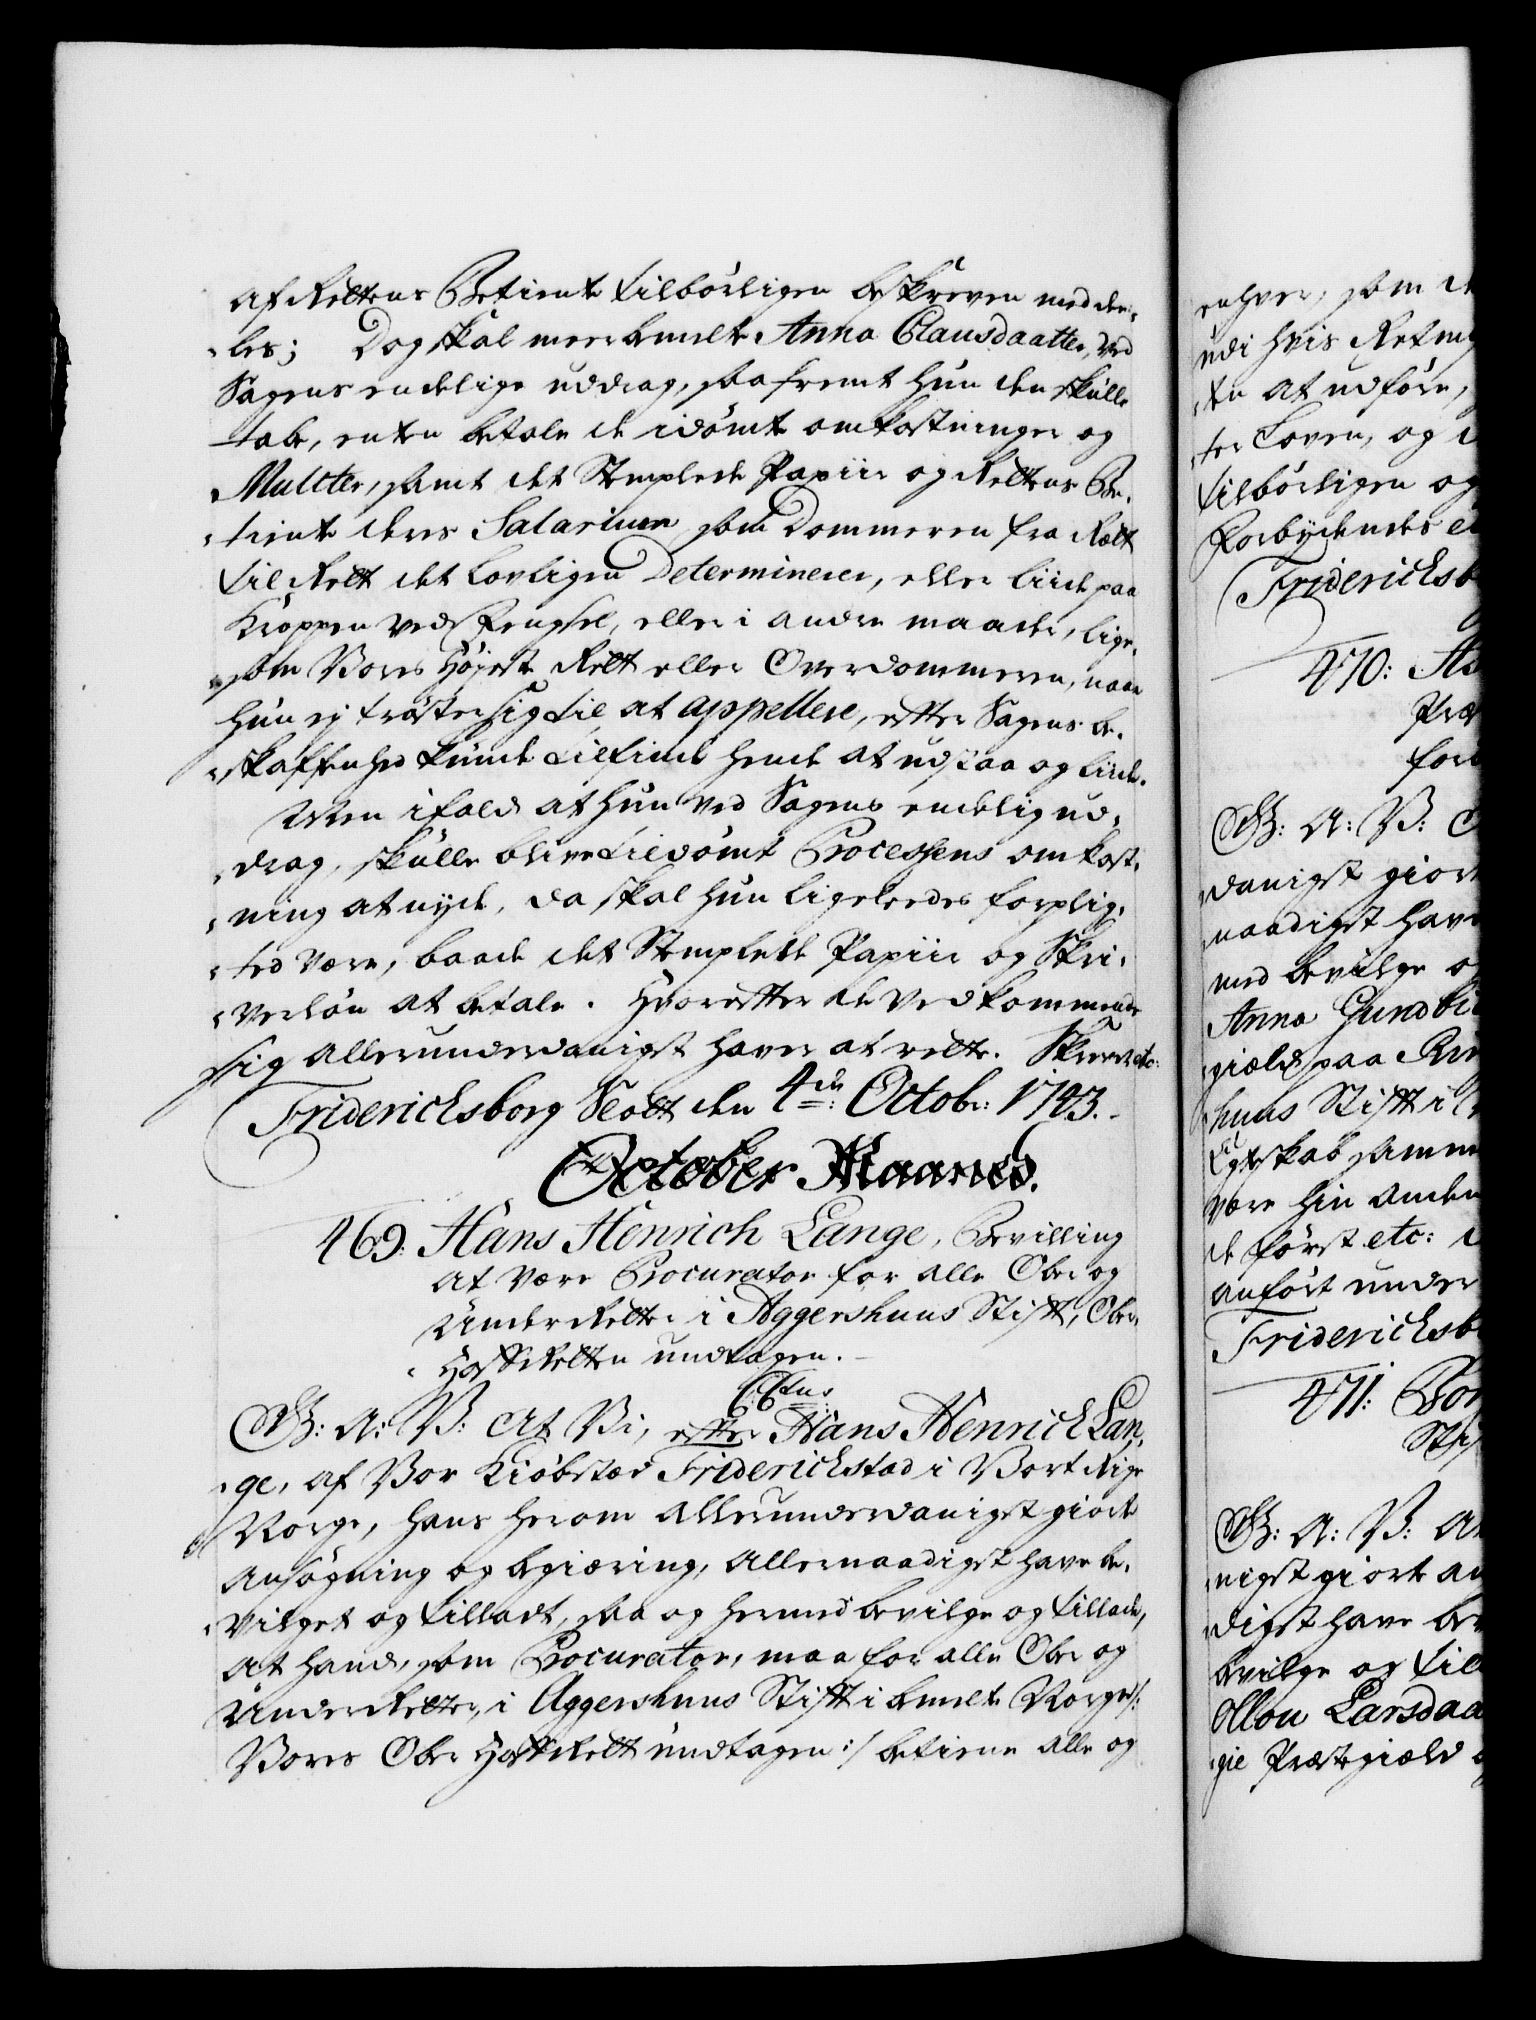 af Rettens Betiente tilbörligen beskreven meddee-
les; Dog skal meerbemelte Anna Clausdaatter, ved
Sagens endelige uddrag, saafremt hun den skulle
tabe, enten betale de idömte omkostninger og
Mulcter, samt det Stemplede Papiir og Rettens Be-
tiente deres Salarium, som Dommeren fra Rett
til Rett det lovligen Determinerer, eller liide paa
Kroppen ved Fengsel, eller i andre maader, lige-
som Vores Höjeste Rett eller Overdommeren, naar
hun ej tröster sig til at appellere, efter Sagens be-
skaffenhed kunde tilfinde hende at udstaa og liide.
Men ifald at hun ved Sagens endelig ud-
drag, skulle blive tildömt Processens omkost-
ning at nyde, da skal hun ligeleedes forplig-
ted være, baade det Stemplede Papiir og Skri-
verlön at betale. Hvorefter de vedkommende
sig allerunderdanigst haver at rette. Skrevet etc:
Friderichsborg Slott den 4de Octobr: 1743.
October Maaned.
469: Hans Henrich Lange, Bevilling
at være Procurator for alle Ober og
Under Retter i Aggershuus Stift, Ober-
Hoff Retten undtagen.
G: A: V: At Vi, efter Hans Henrich Lan-
ge, af Vor Kiöbsted Friderichstad i Vort Rige
Norge, hans herom allerunderdanigst giorte
ansögning og begiæring, allernaadigst have be-
vilget og tilladt, saa og hermed bevilge og tillade,
at hand, som Procurator, maa for alle Ober og
Under Retter, i Aggershuus Stift i bemelte Norge /:
Vores Ober Hoff Rett undtagen :/ betiene alle og
enhver, som
udi hvis Retting
ten at udföre,
ter Loven, og
tilbörligen og
Forbydendes
Friderichsb
470:
G: A: V:
danigst giort
naadigst have
med bevilge
Anna Gundbi
giæld paa
huus Stift i
Egteskab samm
være hin anden
de först etc:
anfört under
Friderichsb
471:
G: A: V: A
nigst giorte an
digst have be
bevilge og till
Larsdaa
gie Præstegiæld